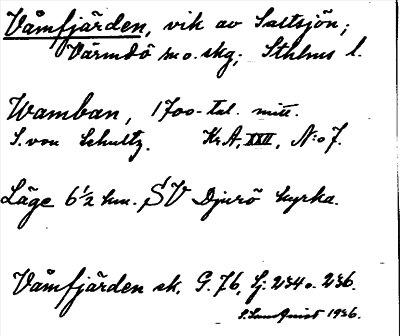 Våmfjärden, vik av Saltsjön;
Värmdö m.o. skg; Sthlms l.
Wamban, 1700-tal. mitt.
S. von Schultz. Kr.A, XXII, N:o 7.
Läge 6 1/2 km. SV Djurö kyrka.
Våmfjärden sk. G. 76, Lj. 234 o. 236.
1936.